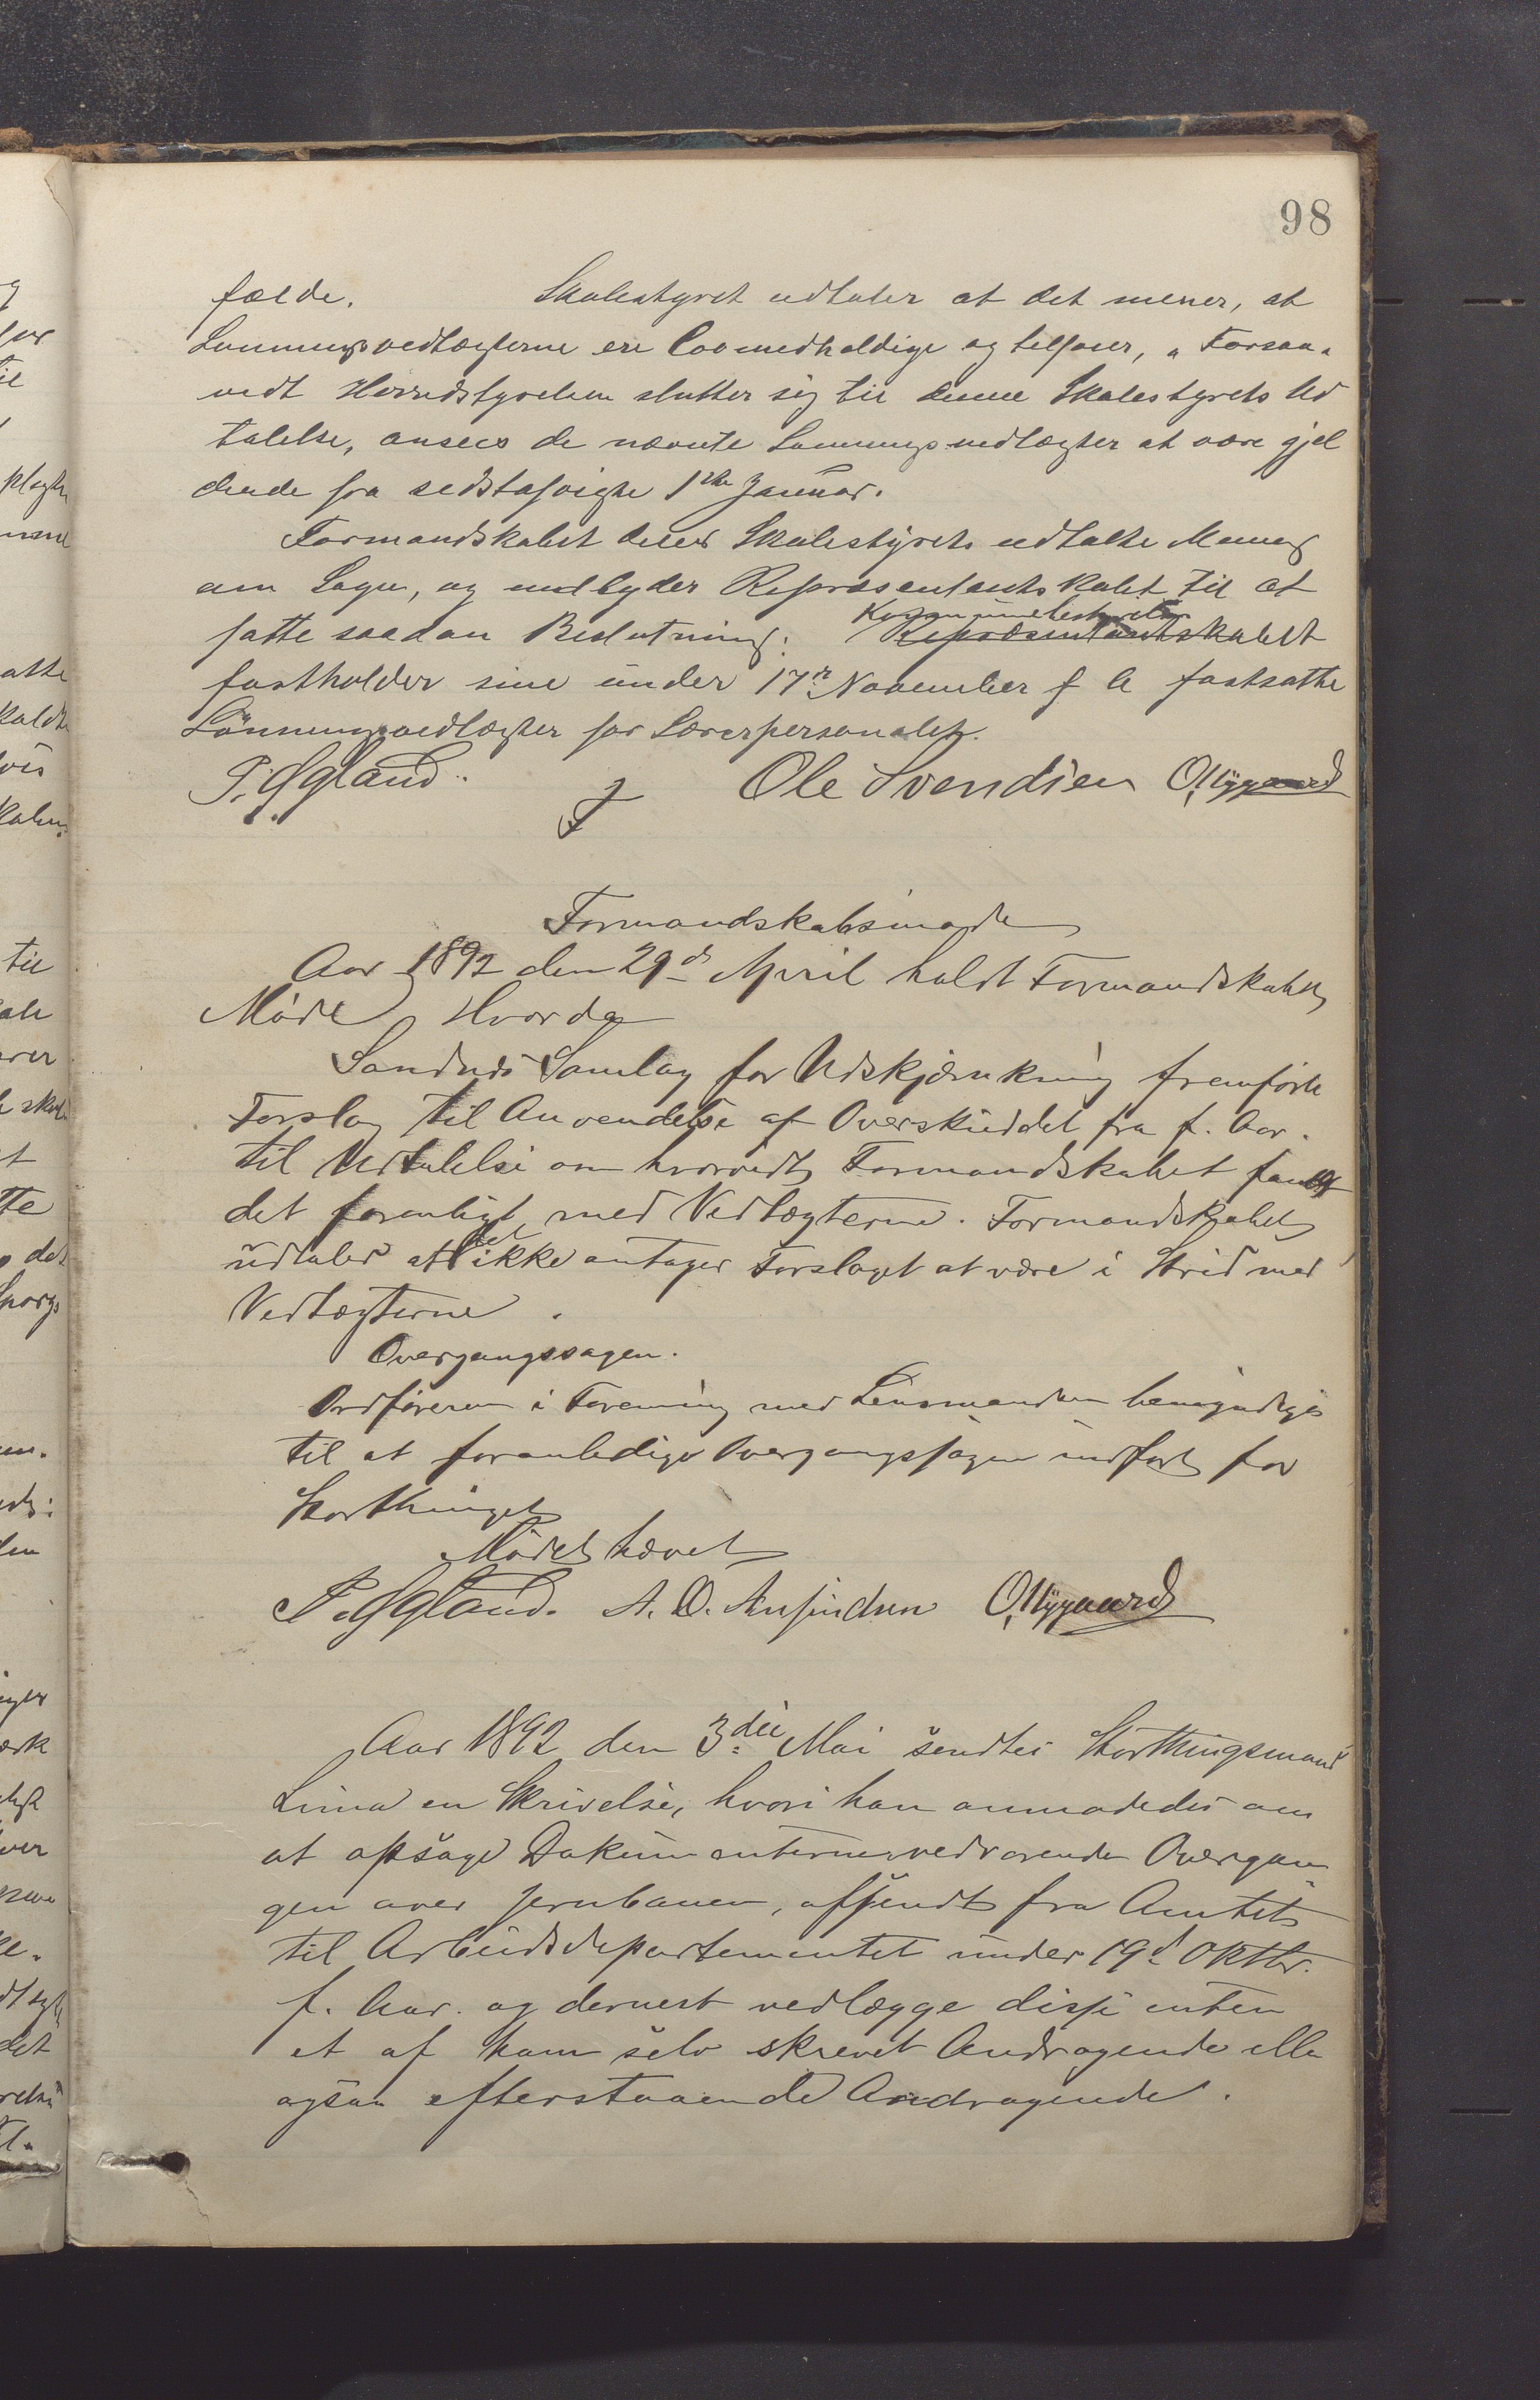 98
fælde. Skolestyret udtaler at det mener, at
Lønningsvedtægterne ere lovmedholdige og tilføier, "Forsaa-
vidt Herredstyrelsen slutter sig til denne Skolestyrets Ud
talelse, ansees de nævnte Lønningsvedtægter at være gjel
dende fra sidstafvigte 1ste Januar.
Formandskabet deler Skolestyrets udtalte Mening
om Sagen, og indbyder Repræsentantskabet til at
fatte saadan Beslutning: Kommunebestyrelsen Repræsentantskabet
fastholder sine under 17de November f A fastsatte
Lønningsvedtægter for Lærerpersonalet.
P. Ggland. Ole Svendsen O. Nygaard
Formandskabsmøde
Aar 1892 den 29d April holdt Formandskabet
Møde Hvorda
Sandnes Samlag for Udskjænkning fremførte
Forslag til Anvendelse af Overskuddet fra f. Aar.
til Udtalelse om hvorvidt Formandskabet fandt
det forenligt med Vedtægterne. Formandskabet
udtaler at det ikke antager Forslaget at være i Strid med
Vedtægterne.
Overgangssagen.
Ordføreren i Forening med Lensmanden bemyndiges
til at foranledige Overgangssagen indført for
Storthinget
Mødet hævet
P. Ggland. A. O. O. Nygaard
Aar 1892 den 3die Mai sendtes Storthingsmand
Lima en Skrivelse, hvori han anmodedes om
at opsøge Dokumenterne vedrørende Overgan
gen over Jernbanen, afsendt fra Amtet
til Arbeidsdepartementet under 19d Oktbr.
f. Aar. og dernest vedlægge disse enten
et af ham selv skrevet Andragende elle
ogsaa efterstaaende Andragende.